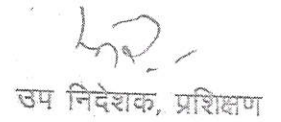 उप निदेशक, प्रशिक्षण